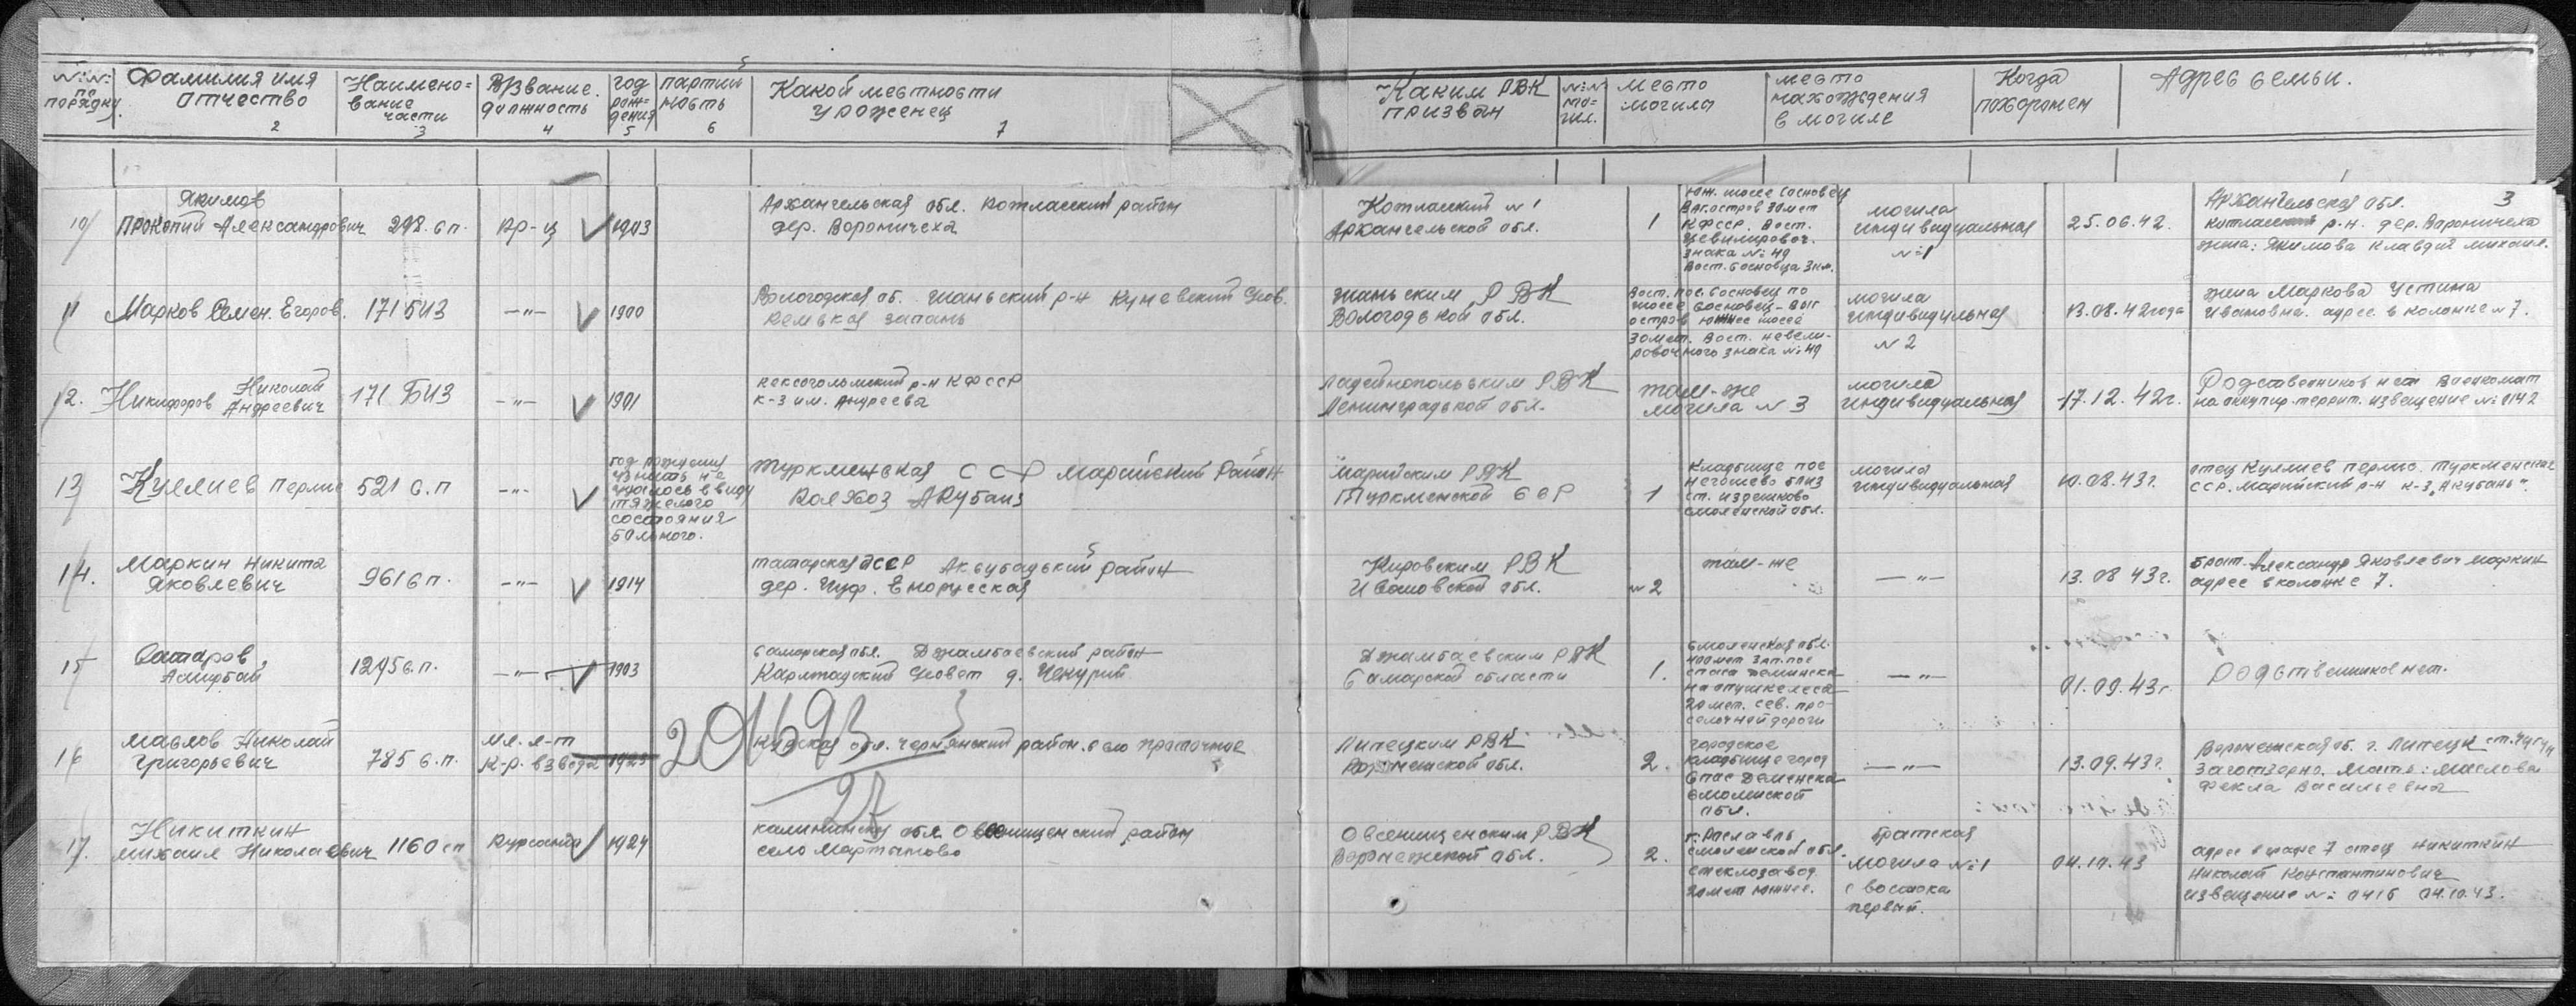 №№ по порядку.
Фамилия имя отчество
2
Наимено=вание части
3
В/Звание. должность
4
год рож=дения
5
партий ность
6
Какой местности уроженец
7
Каким РВК призван
№№ мо=гил.
место могила
место нахождения в могиле
Когда похоронен
Адрес семьи.
3
10/
Якимов
Прокопий Александрович
298. сп.
кр-ц
1903
Архангельская обл. Котласский район
дер. Вороничеха
Котласский №1
Архангельской обл.
1
Юж. шоссе Сосновец
Выгостров 30 мет
КФССР. Вост.
знака №49
Вост. Сосновца 3 км.
могила
индивидуальная
№1
25.06.42.
Архангельская обл.
Котласский р-н. дер. Вороничеха
жена: Якимова Клавдия Михаил.
11
Марков Семен. Егоров.
171 БИЗ
—"—
1900
Вологодская об. р-н
Кемьская запань
РВК
Вологодской обл.
Вост. пос. Сосновец по
шоссе Сосновец-Выг
остров южнее шоссе
30 мет. Вост. невели-
ровочного знака №49
могила
индивидуальная
№2
13.08.42 года
жена Маркова Устина
Ивановна. адрес в колонке №7.
12.
Никифоров Николай Андреевич
171 БИЗ
—"—
1901
р-н КФССР
к-з им. Андреева
Ладейнопольским РВК
Ленинградской обл.
там-же
могила №3
могила
индивидуальная
17.12.42г.
Родственников нет Военкомат
на оккупир. террит. извещение № 0142
13
Куллиев Перлис
521 с.п
—"—
год рождения
узнать не
удалось ввиду
тяжелого
состояния
больного.
Туркменская ССР Марийский Район
Колхоз Акубаиз
Марийским РВК
Туркменской ССР
1
Кладбище пос
близ
ст. Издешково
Смоленской обл.
могила
индивидуальная
10.08.43г.
отец Куллиев Перлис. Туркменская
ССР. Марийский р-н к-з „Акубань".
14.
Маркин Никита
Яковлевич
961 сп.
—"—
1914
Татарская АССР Аксубадький район
дер. Чув. Енорусская
Кировским РВК
Ивановской обл.
№2
там-же
—"—
13.08 43г.
Брат. Александр Яковлевич Маркин
адрес в колонке 7.
15
Сатаров
Ашурбай
1245 с.п.
—"—
1903
Самарская обл. Джамбаевский район
Карлтадский Совет д. Чекурий
Джамбаевским РВК
Самарской области
1.
Смоленская обл.
400 мет зап. пос
Спаса Деминска
на опушке леса
20 мет. сев. про-
селочной дороги
—"—
01.09.43г.
Родственников нет.
16
Маслов Николай
Григорьевич
785 с.п.
мл. л-т
к-р. взвода
1923
201693
27
Курская обл. Чернянский район. село Проточное
Липецким РВК
Воронежской обл.
2.
городское
кладбище город
Спас Деменска
Смоленской
обл.
—"—
13.09.43г.
Воронежская об. г. Липецк ст. Чугун
Заготзерно. Мать: Маслова
Фекла Васильевна
17.
Никиткин
Михаил Николаевич
1160 сп
Курсант
1924
Калининская обл Овсенищенский район
село Мартыново
Овсенищенским РВК
Воронежской обл.
2.
г. Рославль
Смоленской обл.
стеклозавод
20 мет южнее.
братская
могила №1
с востока
первый.
04.10.43
адрес в графе 7 отец Никиткин
Николай Константинович
извещение № 0416 04.10.43.